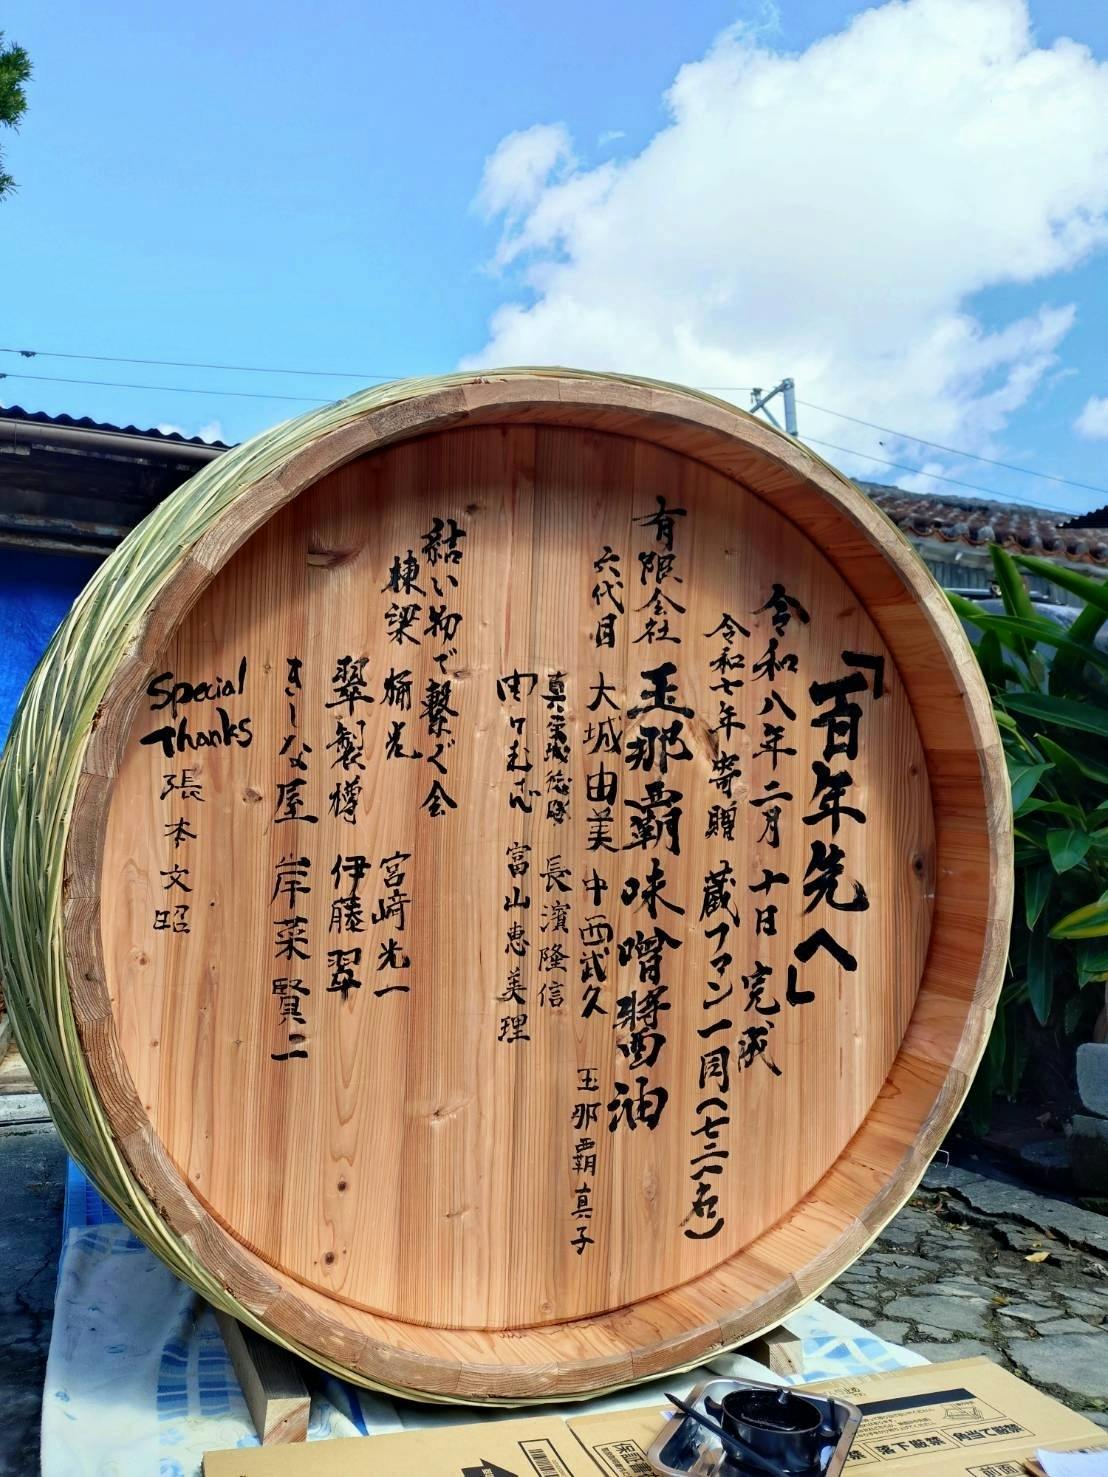 「百年先へ」
令和八年二月十日 完成
令和七年寄贈 蔵ファン一同(七二一名)
有限会社 玉那覇味噌醤油
六代目 大城由美 中西武久 玉那覇真子
真玉城徳勝 長濱隆信
富山恵美理
結い物で繋ぐ会
棟梁 桶光 宮﨑光一
翠製樽 伊藤翠
きしな屋 岸菜賢二
Special
Thanks
張本文昭